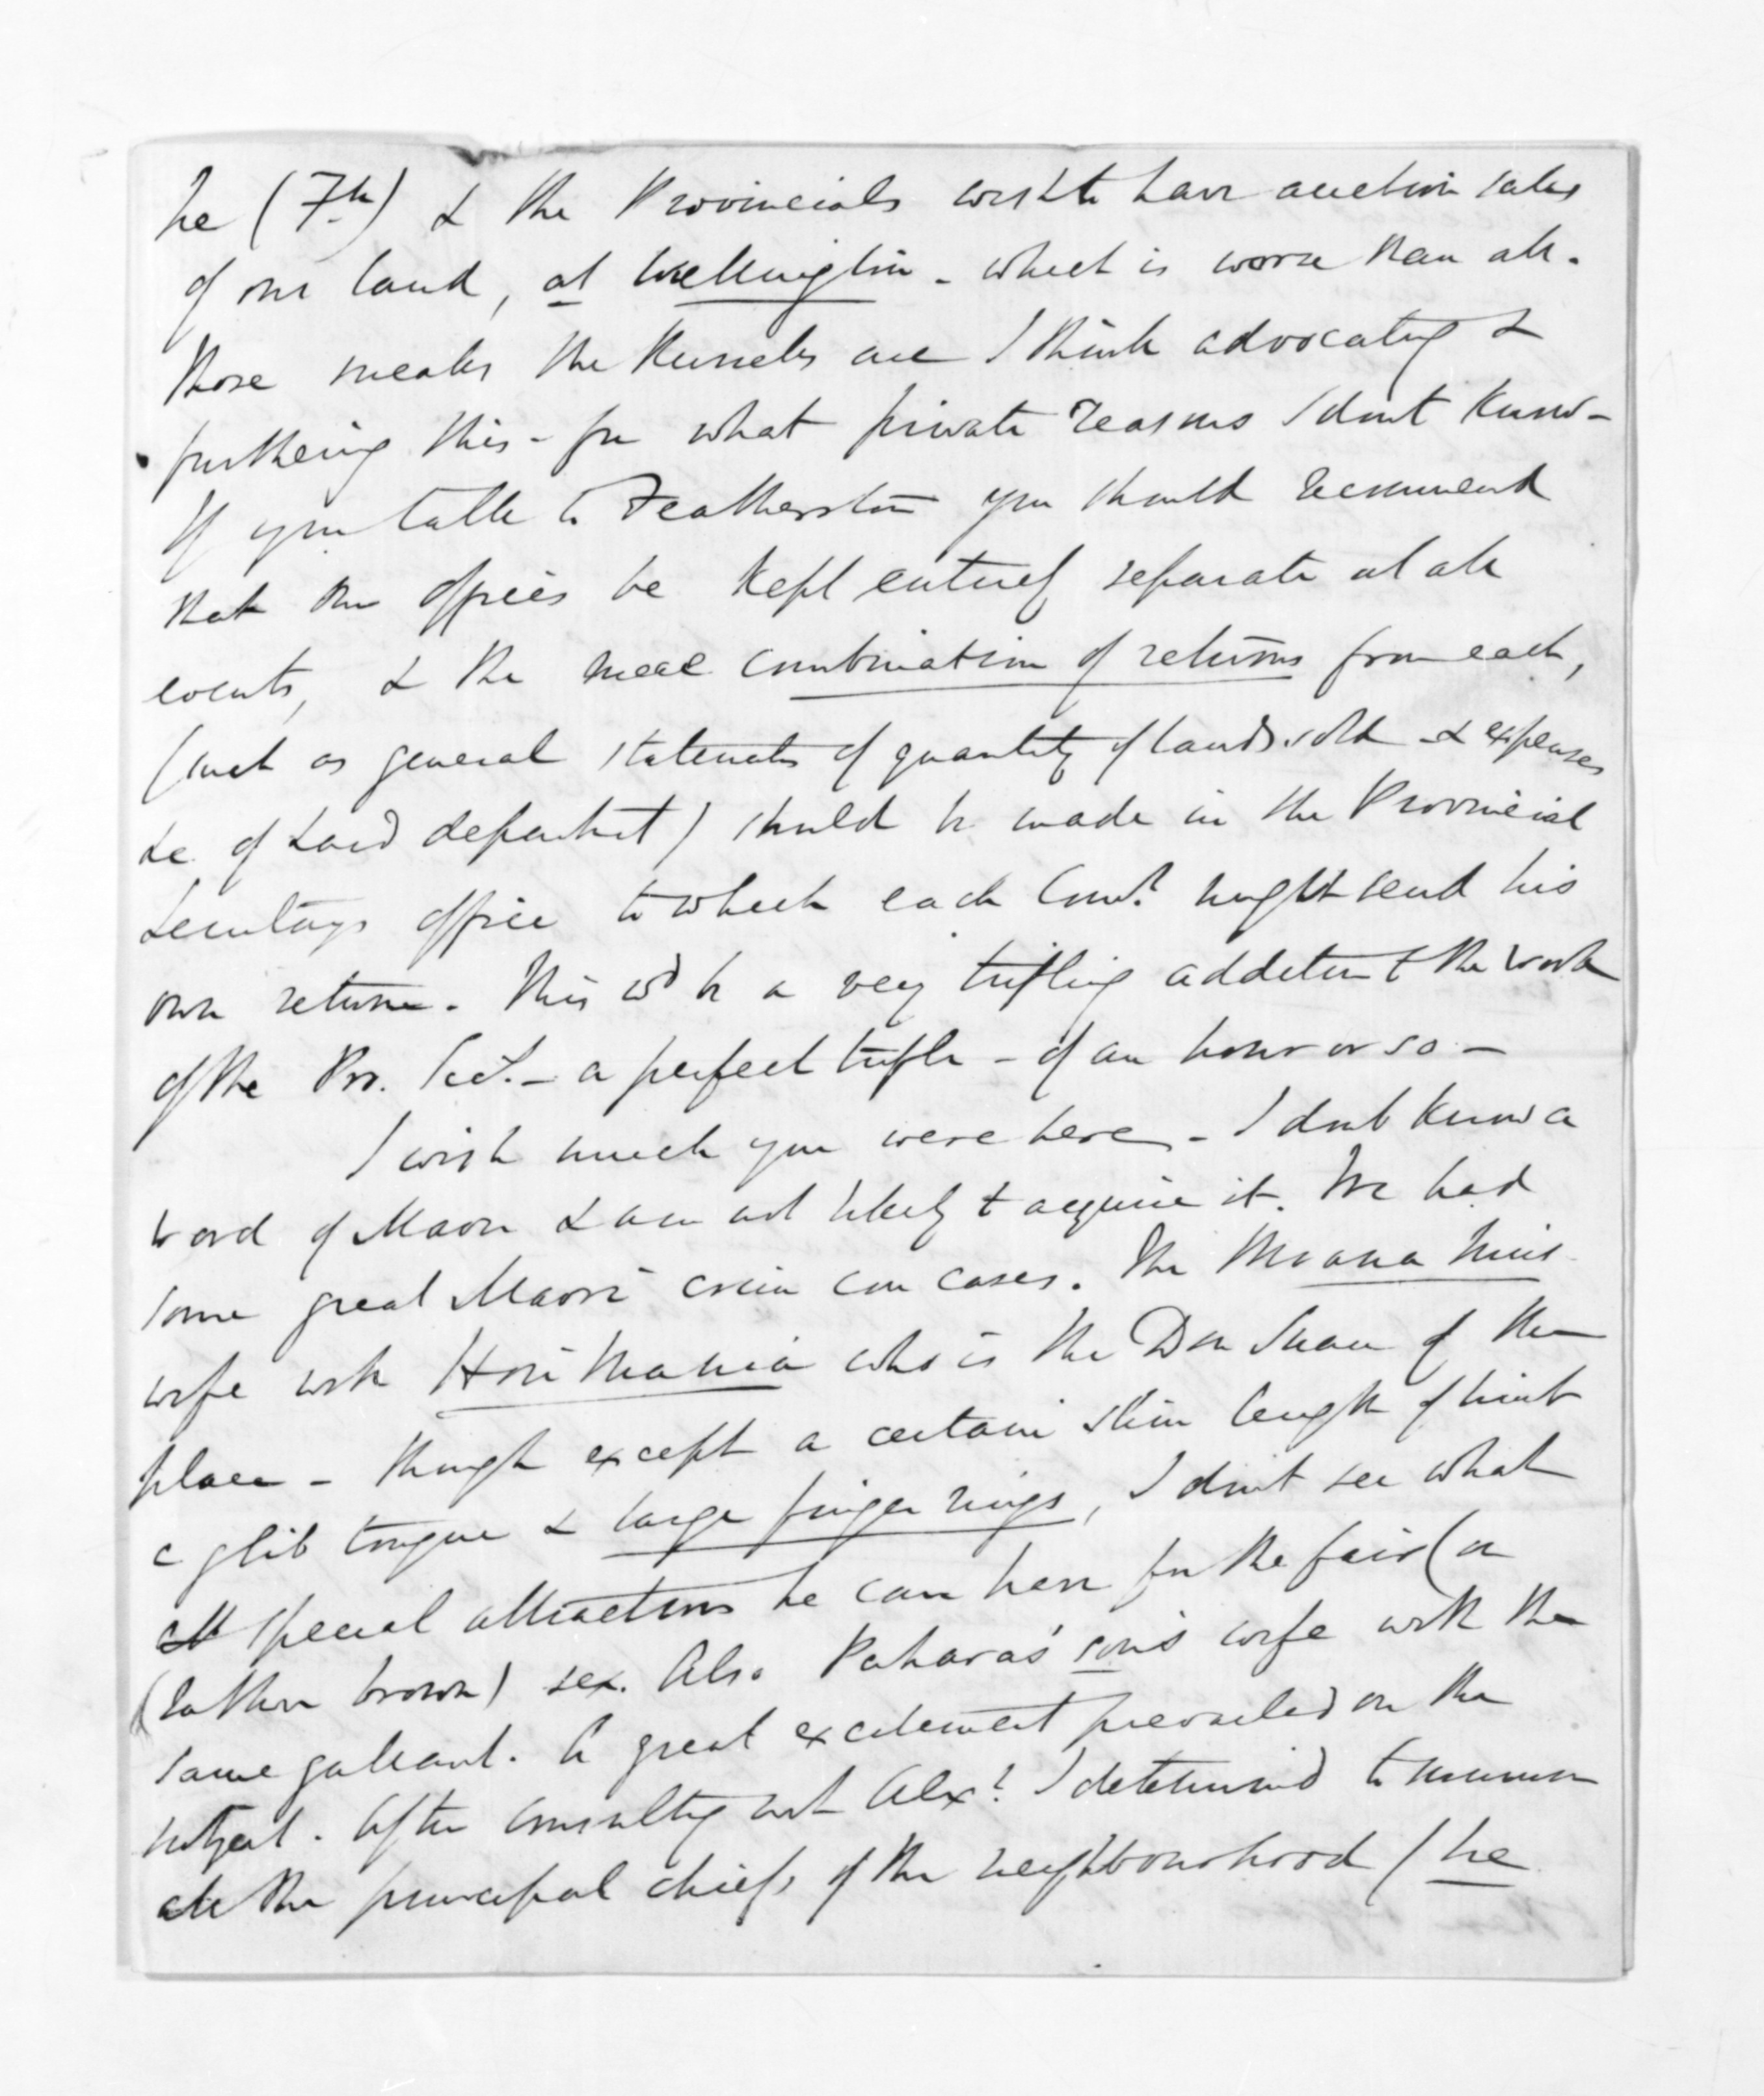 he (Fth) & the Provincials wish to have auction sales
of our land, at Wellington - which is worse than all.
Those sneaks the Russells are I think advocating &
furthering this - for what private reasons I don't know -
If you talk to Featherston you should recommend
that the offices be kept entirely separate at all
events, & the mere combination of returns from each,
(such as general statements of quantity of lands sold & expenses
&c. of Land department) should be made in the Provincial
Secretarys office to which each Comr. might send his
own return. This wd be a very trifling addition to the work
of the Pro. Sec. - a perfect trifle - of an hour or so -
I wish much you were here - I don't know a
word of Maori & am not likely to acquire it. We had
some great Maori crim con cases. The Moananuis
wife with Hori who is the Don Juan of the
place - though except a certain slim length of limb
a glib tongue & large finger rings, I don't see what
special attractions he can have for the fair (or
(rather brown) sex. Also Paharas' son's wife with the
same gallant. A great excitement prevailed on the
subject. After consulting with Alexr. I determined to summon
all the principal chiefs of the neighbourhood (he